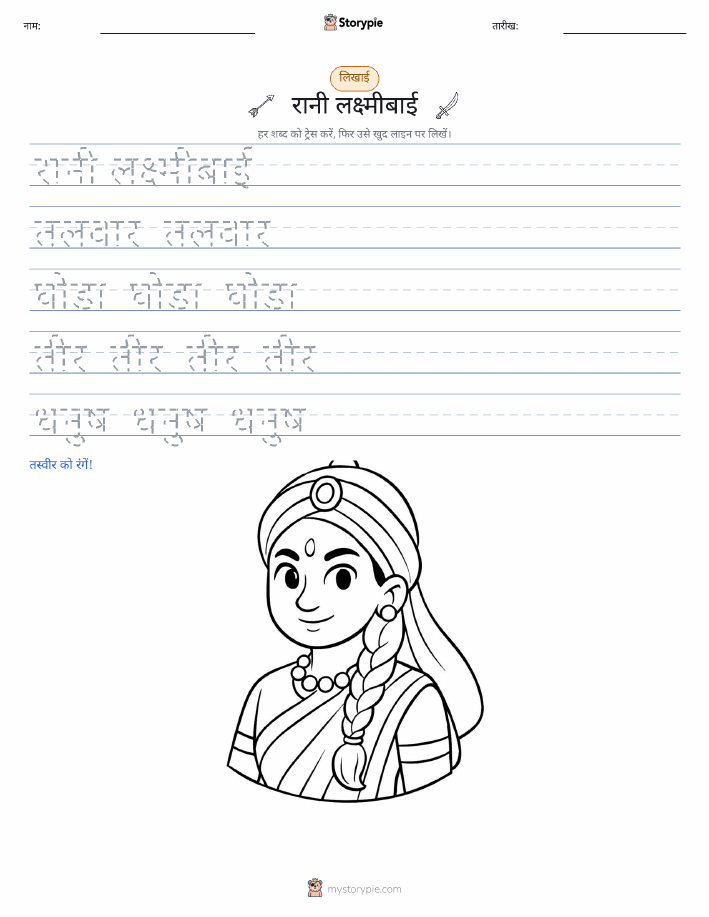 नाम:
Storypie
तारीख:
लिखाई
रानी लक्ष्मीबाई
हर शब्द को ट्रेस करें, फिर उसे खुद लाइन पर लिखें।
रानी लक्ष्मीबाई
तलवार तलवार
घोडा घोडा घोडा
तीर तीर तीर तीर
धनुष धनुष धनुष
तस्वीर को रंगें!
mystorypie.com